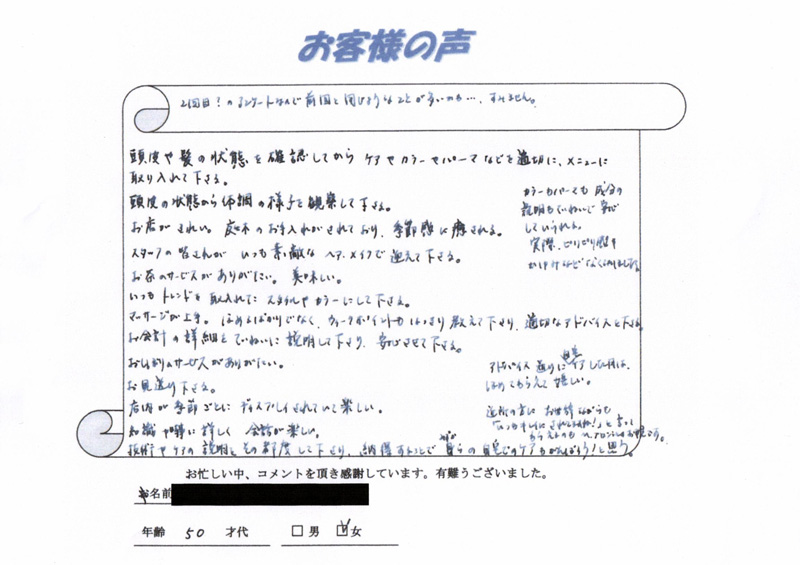 お客様の声
2回目?のアンケートなので前回と同じようなことが多いかも…、すみません。
頭皮や髪の状態を確認してからケアやカラーやパーマなどを適切に、メニューに
取り入れて下さる。
頭皮の状態から体調の様子を観察して下さる。
お店がきれい。庭木のお手入れがされており、季節感に癒される。
スタッフの皆さんがいつも素敵なヘア、メイクで迎えて下さる。
お茶のサービスがありがたい。美味しい。
いつもトレンドを取入れたスタイルやカラーにして下さる。
マッサージが上手。ほめるばかりでなく、ウィークポイントもはっきり教えて下さり、適切なアドバイスを下さる
お会計の詳細をていねいに説明して下さり、安心させて下さる。
おしぼりのサービスがありがたい。
お見送り下さる。
店内が季節ごとにディスプレイされていて楽しい。
知識や噂に詳しく会話が楽しい。
技術やケアの説明をその都度して下さり、納得することで自らの自宅でのケアもがんばろう!と思う。
カラーもパーマも成分の
説明もていねいで安心
していられる。
実際、ピリピリ感や
かゆみなどなくなりました。
アドバイス通りに自宅ケアした時は、
ほめてもらえて嬉しい。
近所の方にお世辞ながらも
「いつもキレイにされてますね!」と言って
お忙しい中、コメントを頂き感謝しています。有難うございました。
お名前
年齢 50 才代 □ 男 ☑ 女